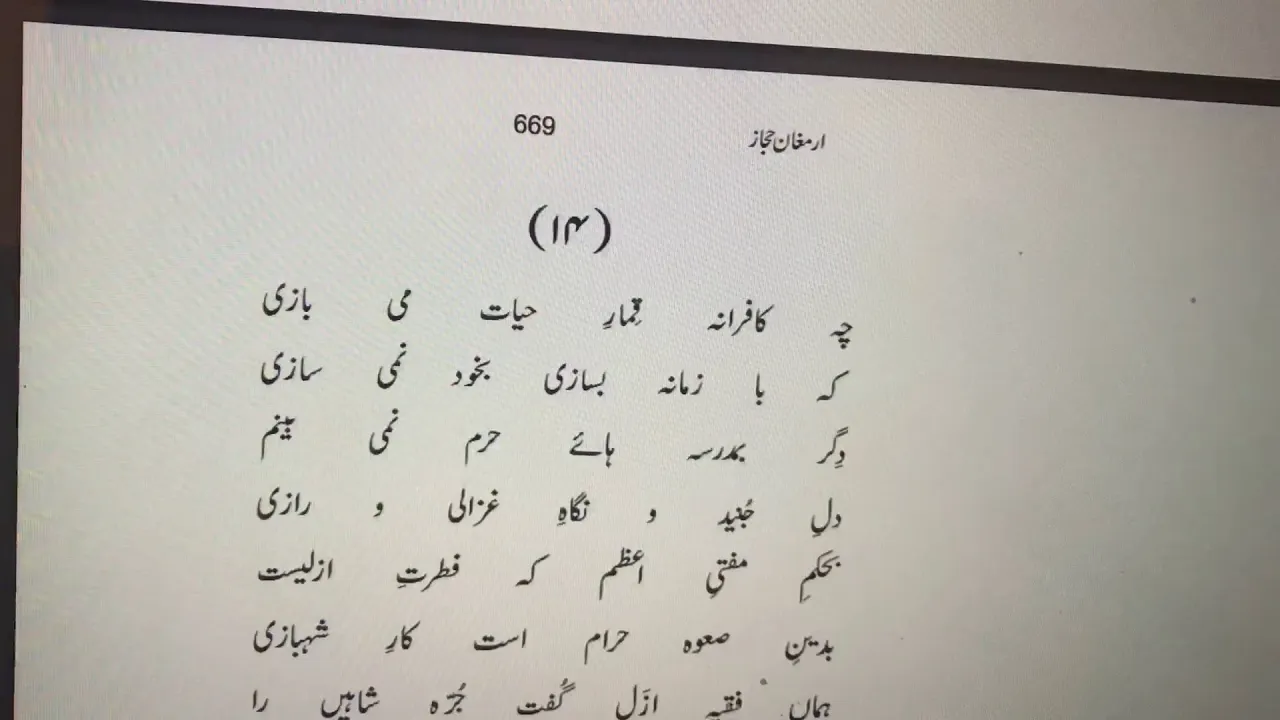 ارمغان حجاز
669
(۱۴)
چہ کافرانہ قِمارِ حیات می بازی
کہ با زمانہ بسازی بخود نمی سازی
دِگر بمدرسہ ہائے حرم نمی بینم
دلِ جُنید و نگاہِ غزالی و رازی
بحکمِ مفتیِ اعظم کہ فطرتِ ازلیست
بدینِ صعوہ حرام است کارِ شہبازی
ہماں فقیہِ ازَل گُفت جُرّہ شاہیں را